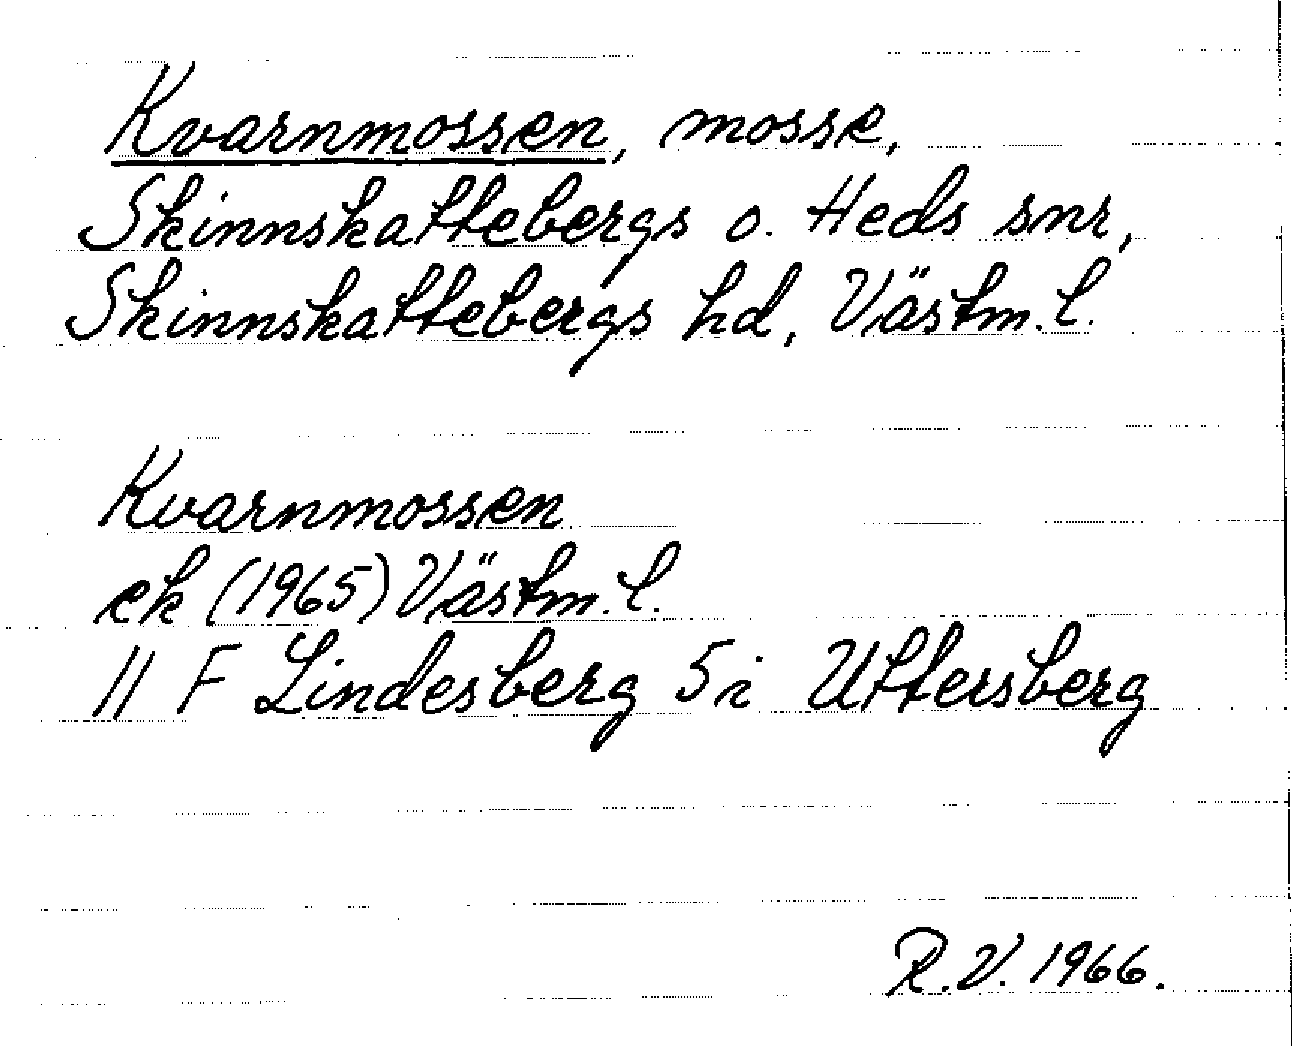 Kvarnmossen, mosse,
Skinnskattebergs o. Heds snr,
Skinnskattebergs hd, Västm. l.
Kvarnmossen
ek (1965) Västm. l.
11 F Lindesberg 5i Uttersberg
R.V. 1966.